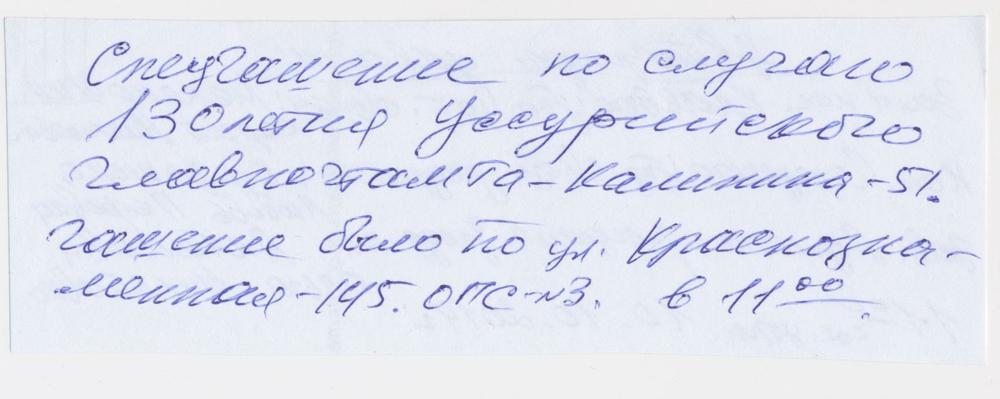 Спецгашение по случаю
130летия Уссурийского
главпочтамта - Калинина - 51.
гашение было по ул. Краснозна-
менная - 145. ОПС - №3. в 11 00